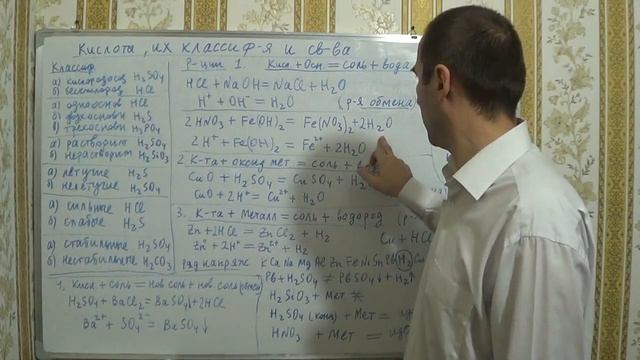 Кислота, их классиф-я и св-ва
Классиф
а) кислородсод H₂SO₄
б) бескислород HCl
а) однооснов HCl
б) двухоснов H₂S
в) трёхоснов H₃PO₄
а) растворим H₂SO₄
б) нерастворим H₂SiO₃
а) летучие H₂S
б) нелетучие H₂SO₄
а) сильные HCl
б) слабые H₂S
а) стабильные H₂SO₄
б) нестабильные H₂CO₃
Р-ции 1. Кисл + Осн. = соль + вода
HCl + NaOH = NaCl + H₂O
H⁺ + OH⁻ = H₂O (р-я обмена)
2HNO₃ + Fe(OH)₂ = Fe(NO₃)₂ + 2H₂O
2H⁺ + Fe(OH)₂ = Fe²⁺ + 2H₂O
2 К-та + оксид мет = соль +
CuO + H₂SO₄ = CuSO₄ + H₂
CuO + 2H⁺ = Cu²⁺ + H₂O
3. К-та + металл = соль + водород (р-
Zn + 2HCl = ZnCl₂ + H₂
Cu + HCl
Zn⁰ + 2H⁺ = Zn²⁺ + H₂
Ряд напряж K Ca Na Mg Al Zn Fe Ni Sn Pb (H₂) Cu
Pb + H₂SO₄ ≠ PbSO₄↓ + H₂↑
H₂SiO₃ + Мет ≠
H₂SO₄ (конц) + Мет =
HNO₃ + Мет =
1. Кисл + соль = нов соль + нов
H₂SO₄ + BaCl₂ = BaSO₄↓ + 2HCl
Ba²⁺ + SO₄²⁻ = BaSO₄↓